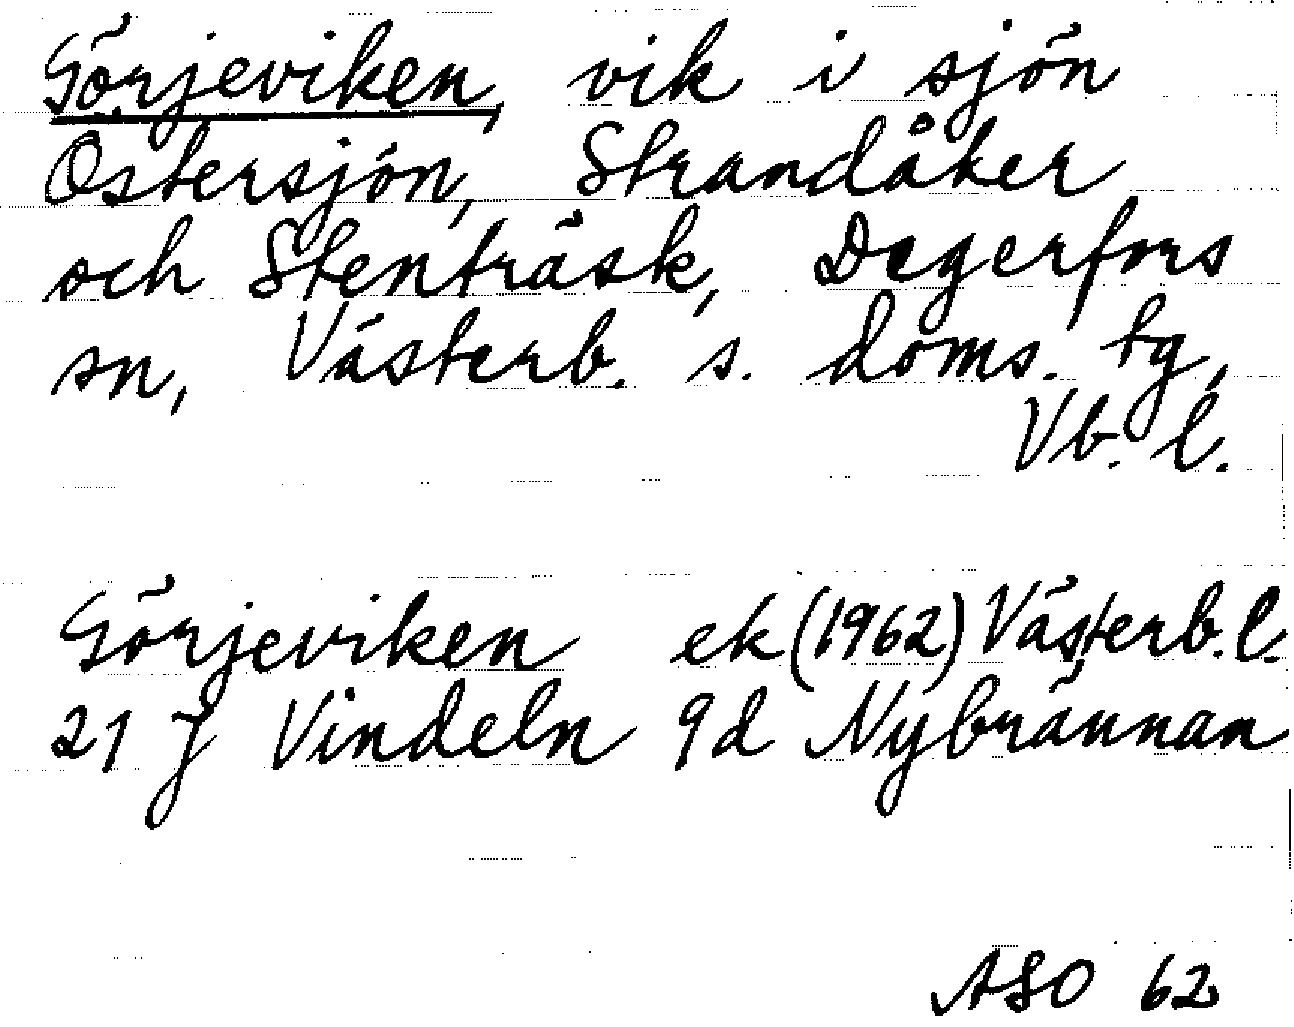 Görjeviken, vik i sjön
Östersjön, Strandåker
och Stenträsk, Degerfors
sn, Västerb. s. doms. tg,
Vb. l.
Görjeviken ek (1962) Västerb. l.
21 J Vindeln 9d Nybrännan
ASO 62